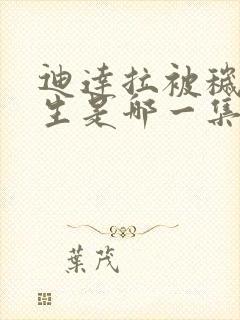 迪达拉被秽
生是那一集
葉茂